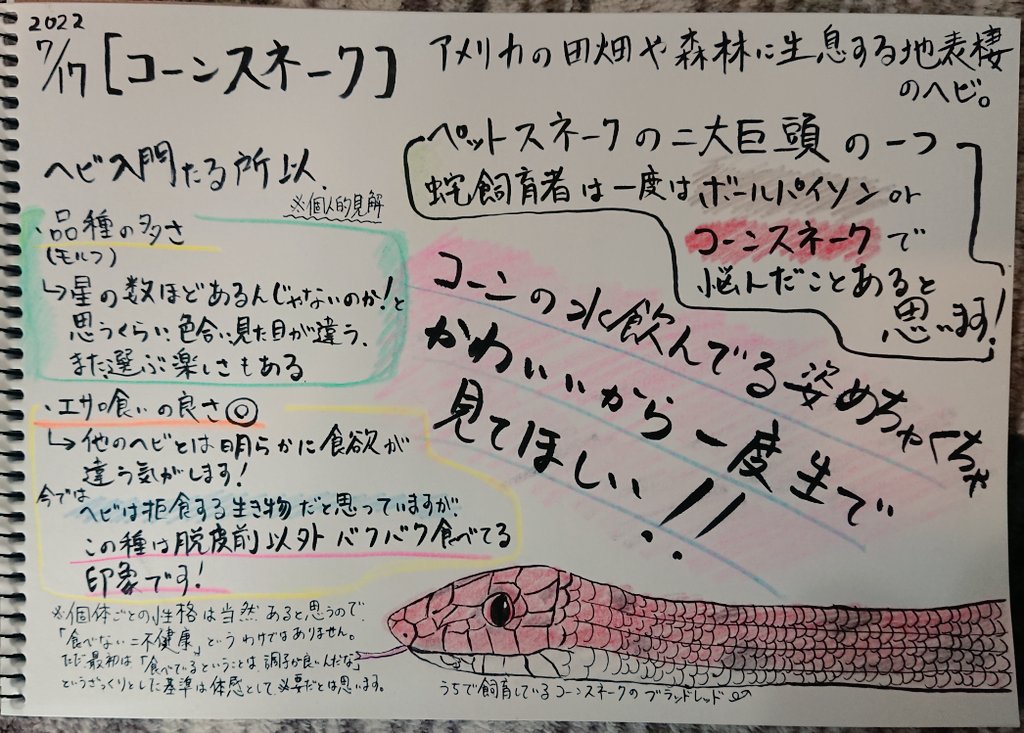 2022
7/17
[コーンスネーク]
アメリカの田畑や森林に生息する地表棲
のヘビ。
ペットスネークの二大巨頭の一つ
蛇飼育者は一度はボールパイソンor
コーンスネークで
悩んだことあると
思います!
ヘビ入門たる所以
※個人的見解
・品種の多さ
(モルフ)
↳星の数ほどあるんじゃないのか!と
思うくらい色合い見た目が違う、
また選ぶ楽しさもある
・エサ喰いの良さ◎
↳他のヘビとは明らかに食欲が
違う気がします!
今では
ヘビは拒食する生き物だと思っていますが、
この種は脱皮前以外バクバク食べてる
印象です!
※個体ごとの性格は当然あると思うので
「食べない=不健康」というわけではありません。
ただ最初は「食べているということは調子が良いんだな」
というざっくりとした基準は体感として必要だとは思います。
コーンの水飲んでる姿めちゃくちゃ
かわいいから一度生で
見てほしい!!
うちで飼育しているコーンスネークのブラッドレッド♂